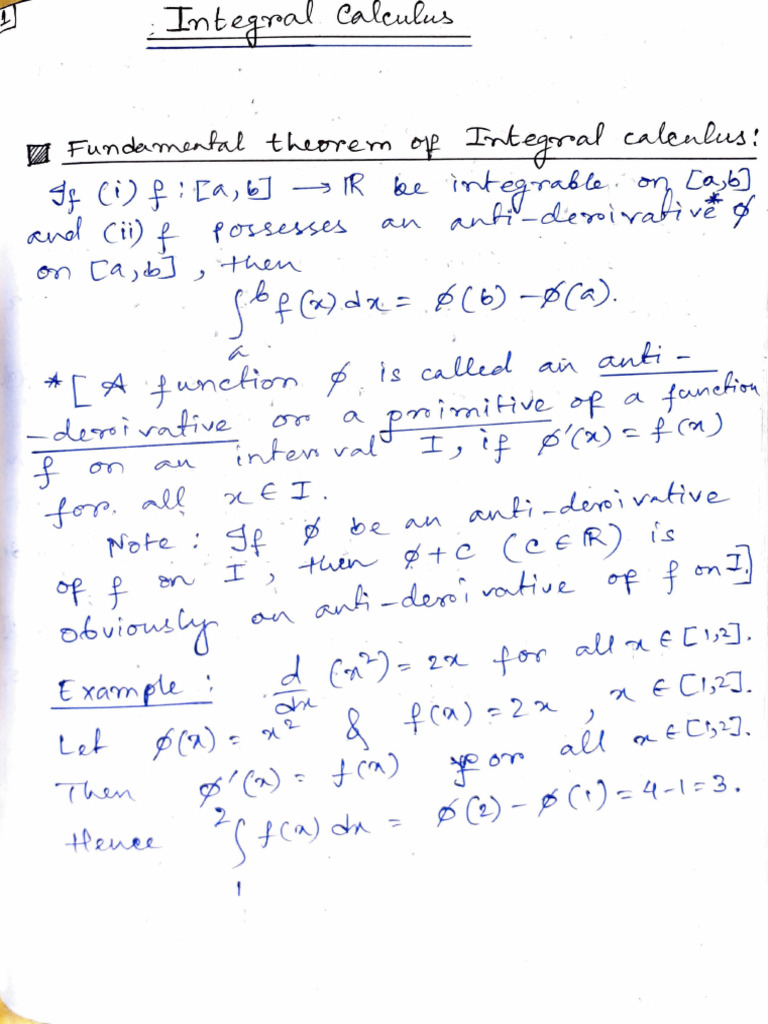 1
Integral Calculus
Fundamental theorem of Integral calculus:
If (i) f : [a,b] → ℝ be integrable on [a,b]
and (ii) f possesses an anti-derivative* ϕ
on [a,b], then
∫ₐᵇ f(x) dx = ϕ(b) - ϕ(a).
*[ A function ϕ is called an anti-
-derivative or a primitive of a function
f on an interval I, if ϕ'(x) = f(x)
for all x ∈ I.
Note : If ϕ be an anti-derivative
of f on I, then ϕ+c (c ∈ ℝ) is
obviously an anti-derivative of f on I.]
Example : d/dx (x²) = 2x for all x ∈ [1,2].
Let ϕ(x) = x² & f(x) = 2x, x ∈ [1,2].
Then ϕ'(x) = f(x) for all x ∈ [1,2].
Hence ∫₁² f(x) dx = ϕ(2) - ϕ(1) = 4-1=3.